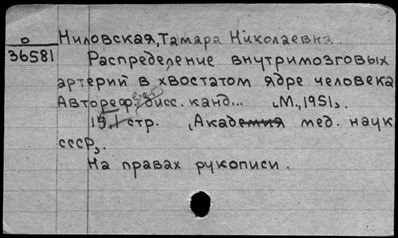 о Ниловская, Тамара Николаевна
36581 Распределение внутримозговых
артерий в хвостатом ядре человека
Автореф. дисс. канд... М., 1951.
стр. Академия мед. наук
СССР.
На правах рукописи.